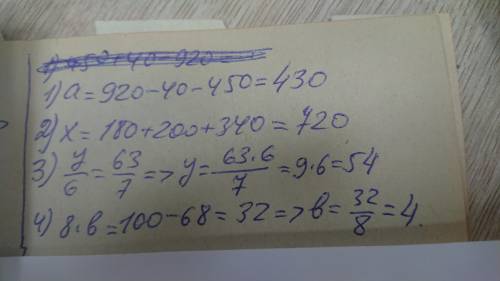 1) a = 920 - 40 - 450 = 430
2) x = 180 + 200 + 340 = 720
3) y/6 = 63/7 => y = 63·6/7 = 9·6 = 54
4) 8·b = 100 - 68 = 32 => b = 32/8 = 4.